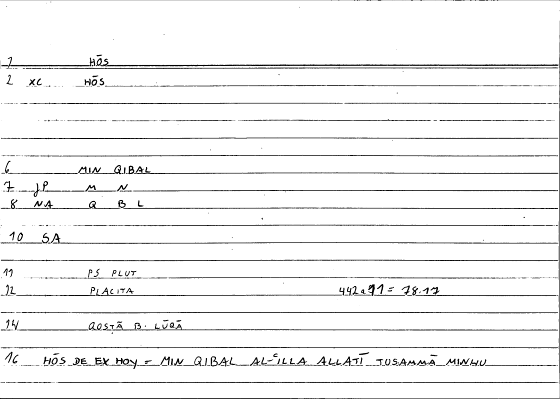 1 HŌS
2 XC HŌS
6 MIN QIBAL
7 JP M N
8 NA Q B L
10 SA
11 PS PLUT
12 PLACITA 442a11 = 78.17
14 QOSTĀ B. LŪQĀ
16 HŌS DE EX HOY = MIN QIBAL AL-ʿILLA ALLATĪ TUSAMMĀ MINHU